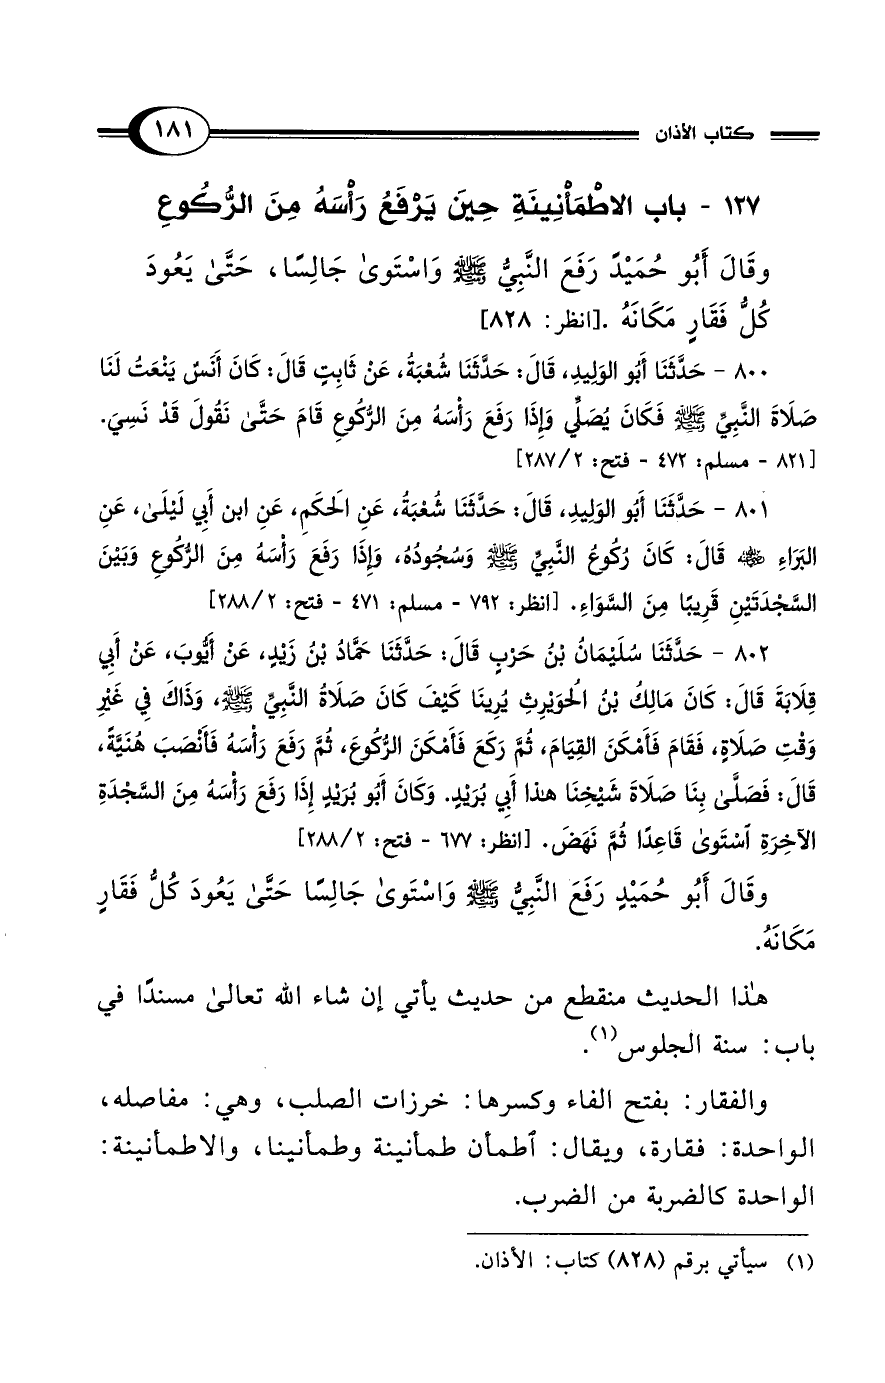 كتاب الأذان ١٨١
١٢٧ - باب الاطْمَأْنِينَةِ حِينَ يَرْفَعُ رَأْسَهُ مِنَ الرُّكُوعِ
وقَالَ أَبُو حُمَيْدٍ رَفَعَ النَّبِيُّ ﷺ وَاسْتَوىٰ جَالِسًا، حَتَّىٰ يَعُودَ
كُلُّ فَقَارٍ مَكَانَهُ .[انظر: ٨٢٨]
٨٠٠ - حَدَّثَنَا أَبُو الوَلِيدِ، قَالَ: حَدَّثَنَا شُعْبَةُ، عَنْ ثَابِتٍ قَالَ: كَانَ أَنَسٌ يَنْعَتُ لَنَا
صَلَاةَ النَّبِيِّ ﷺ فَكَانَ يُصَلِّي وَإِذَا رَفَعَ رَأْسَهُ مِنَ الرُّكُوعِ قَامَ حَتَّىٰ نَقُولَ قَدْ نَسِيَ.
[٨٢١ - مسلم: ٤٧٢ - فتح: ٢/ ٢٨٧]
٨٠١ - حَدَّثَنَا أَبُو الوَلِيدِ، قَالَ: حَدَّثَنَا شُعْبَةُ، عَنِ الَحكَمِ، عَنِ ابن أَبِي لَيْلَىٰ، عَنِ
البَرَاءِ رضي الله عنه قَالَ: كَانَ رُكُوعُ النَّبِيِّ ﷺ وَسُجُودُهُ، وَإِذَا رَفَعَ رَأْسَهُ مِنَ الرُّكُوعِ وَبَيْنَ
السَّجْدَتَيْنِ قَرِيبًا مِنَ السَّوَاءِ. [انظر: ٧٩٢ - مسلم: ٤٧١ - فتح: ٢/ ٢٨٨]
٨٠٢ - حَدَّثَنَا سُلَيْمَانُ بْنُ حَرْبٍ قَالَ: حَدَّثَنَا حَمَّادُ بْنُ زَيْدٍ، عَنْ أَيُّوبَ، عَنْ أَبِي
قِلَابَةَ قَالَ: كَانَ مَالِكُ بْنُ الُحوَيْرِثِ يُرِينَا كَيْفَ كَانَ صَلَاةُ النَّبِيِّ ﷺ، وَذَاكَ فِي غَيْرِ
وَقْتِ صَلَاةٍ، فَقَامَ فَأَمْكَنَ القِيَامَ، ثُمَّ رَكَعَ فَأَمْكَنَ الرُّكُوعَ، ثُمَّ رَفَعَ رَأْسَهُ فَأَنْصَبَ هُنَيَّةً،
قَالَ: فَصَلَّىٰ بِنَا صَلَاةَ شَيْخِنَا هٰذا أَبِي بُرَيْدٍ. وَكَانَ أَبُو بُرَيْدٍ إِذَا رَفَعَ رَأْسَهُ مِنَ السَّجْدَةِ
الآخِرَةِ ٱسْتَوىٰ قَاعِدًا ثُمَّ نَهَضَ. [انظر: ٦٧٧ - فتح: ٢/ ٢٨٨]
وقَالَ أَبُو حُمَيْدٍ رَفَعَ النَّبِيُّ ﷺ وَاسْتَوىٰ جَالِسًا حَتَّىٰ يَعُودَ كُلُّ فَقَارٍ
مَكَانَهُ.
هٰذا الحديث منقطع من حديث يأتي إن شاء الله تعالىٰ مسندًا في
باب: سنة الجلوس(١).
والفقار: بفتح الفاء وكسرها: خرزات الصلب، وهي: مفاصله،
الواحدة: فقارة، ويقال: ٱطمأن طمأنينة وطمأنينا، والاطمأنينة:
الواحدة كالضربة من الضرب.
(١) سيأتي برقم (٨٢٨) كتاب: الأذان.